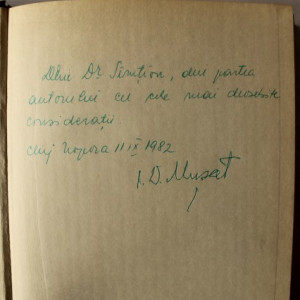 Dlui Dr Simtion, din partea
autorului cu cele mai deosebite
considerații
Cluj Napoca 11 IX 1982
I. D. Mușat